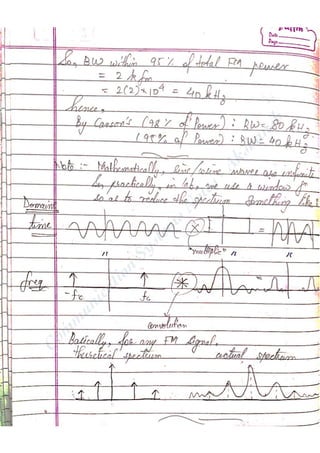 Date
Page
So, BW within 95% of total FM power
= 2 k fm
= 2(2)×10⁴ = 40 kHz
hence,
By Carson's (98% of Power) : BW = 80 kHz
(95% of Power) : BW = 40 kHz
Note :- Mathematically, sine/cosine waves are infinite
So practically, in lab, we use a window fⁿ
so as to reduce the spectrum something like :
Domains
time
"multiplicⁿ"
n
n
n
freq
-fc
fc
convolution
Basically, for any FM signal.
theoretical spectrum
actual spectrum